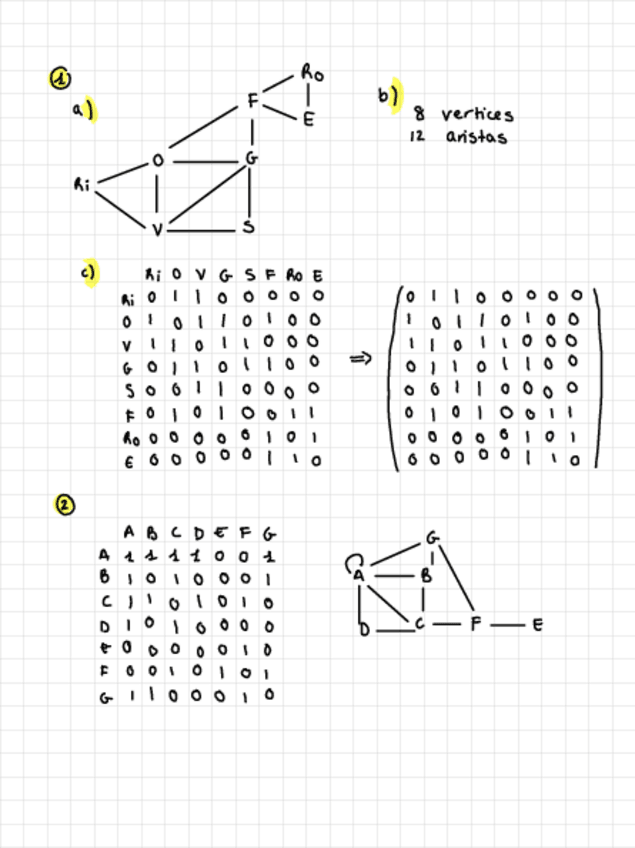 1
a)
Ro
F
E
O
G
Ri
V
S
b)
8 vertices
12 aristas
c)
Ri O V G S F Ro E
Ri 0 1 1 0 0 0 0 0
O 1 0 1 1 0 1 0 0
V 1 1 0 1 1 0 0 0
G 0 1 1 0 1 1 0 0
S 0 0 1 1 0 0 0 0
F 0 1 0 1 0 0 1 1
Ro 0 0 0 0 0 1 0 1
E 0 0 0 0 0 1 1 0
⇒
0 1 1 0 0 0 0 0
1 0 1 1 0 1 0 0
1 1 0 1 1 0 0 0
0 1 1 0 1 1 0 0
0 0 1 1 0 0 0 0
0 1 0 1 0 0 1 1
0 0 0 0 0 1 0 1
0 0 0 0 0 1 1 0
2
A B C D E F G
A 1 1 1 1 0 0 1
B 1 0 1 0 0 0 1
C 1 1 0 1 0 1 0
D 1 0 1 0 0 0 0
E 0 0 0 0 0 1 0
F 0 0 1 0 1 0 1
G 1 1 0 0 0 1 0
G
A B
D C F E